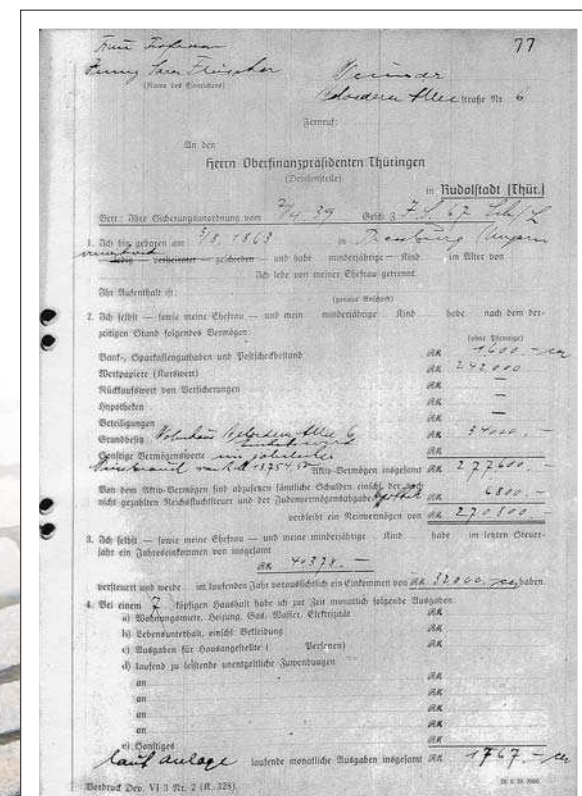 77
Frau Professor
Jenny Sara Fleischer
(Name des Einreichers)
Weimar
Belvederer Allee straße Nr. 6
Fernruf:
An den
Herrn Oberfinanzpräsidenten Thüringen
(Devisenstelle)
in Rudolstadt (Thür.)
Betr.: Ihre Sicherungsanordnung vom 39 Gesch. Z. 67
1. Ich bin geboren am 3/8. 1863 in Pressburg Ungarn
verwitwet
ledig — verheiratet — geschieden — und habe minderjährige — Kind im Alter von
Ich lebe von meiner Ehefrau getrennt.
Ihr Aufenthalt ist:
(genaue Anschrift)
2. Ich selbst — sowie meine Ehefrau — und mein minderjährige Kind habe nach dem der-
zeitigen Stand folgendes Vermögen:
(ohne Pfennige)
Bank-, Sparkassenguthaben und Postscheckbestand RM 1600.–
Wertpapiere (Kurswert) RM 242,000
Rückkaufswert von Versicherungen RM —
Hypotheken RM —
Beteiligungen RM —
Grundbesitz Wohnhaus Belvederer Allee 6 RM 34000.–
Sonstige Vermögenswerte RM
Aktiv-Vermögen insgesamt RM 277600.–
Von dem Aktiv-Vermögen sind abzusetzen sämtliche Schulden einschl. der noch
nicht gezahlten Reichsfluchtsteuer und der Judenvermögensabgabe RM 6800.–
verbleibt ein Reinvermögen von RM 270,800.–
3. Ich selbst — sowie meine Ehefrau — und meine minderjährige Kind habe im letzten Steuer-
jahr ein Jahreseinkommen von insgesamt
RM 40378.–
versteuert und werde im laufenden Jahr voraussichtlich ein Einkommen von RM haben.
4. Bei einem 7 köpfigen Haushalt habe ich zur Zeit monatlich folgende Ausgaben:
a) Wohnungsmiete, Heizung, Gas, Wasser, Elektrizität RM
b) Lebensunterhalt, einschl. Bekleidung RM
c) Ausgaben für Hausangestellte ( Personen) RM
d) laufend zu leistende unentgeltliche Zuwendungen
an RM
an RM
an RM
an RM
e) Sonstiges RM
laut Anlage laufende monatliche Ausgaben insgesamt RM 1767.–
Vordruck Dev. VI 3 Nr. 2 (R. 328)